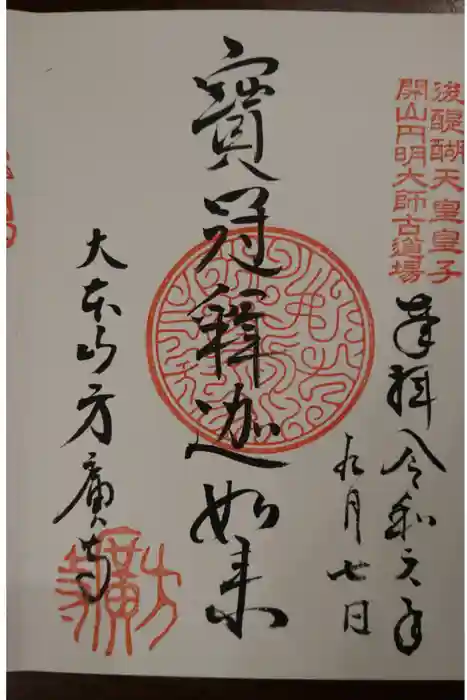 後醍醐天皇皇子
開山円明大師古道場
奉拝 令和元年
九月七日
寶冠釋迦如来
大本山方廣寺
方廣寺